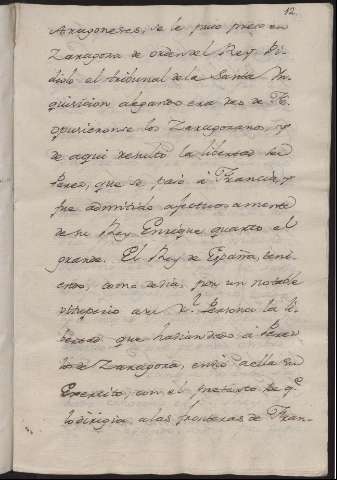 12.
Aragoneses, se le puso preso en
Zaragoza de orden del Rey Pi-
diolo el tribunal de la Santa In
quisicion alegando era reo de Fe
opusieronse los Zaragozanos, y
de aqui resultó la libertad de
Perez, que se pasó á Francia, y
fue admitido afectuosamente
de su Rey Enrique quarto el
grande. El Rey de España, teni-
endo, como debia, por un notable
vituperio a su Rl. Persona la li-
bertad que habian dado á Perez
los de Zaragoza, envió a ella un
Exercito, con el pretexto de qe.
lo dirigia, a las fronteras de Fran-